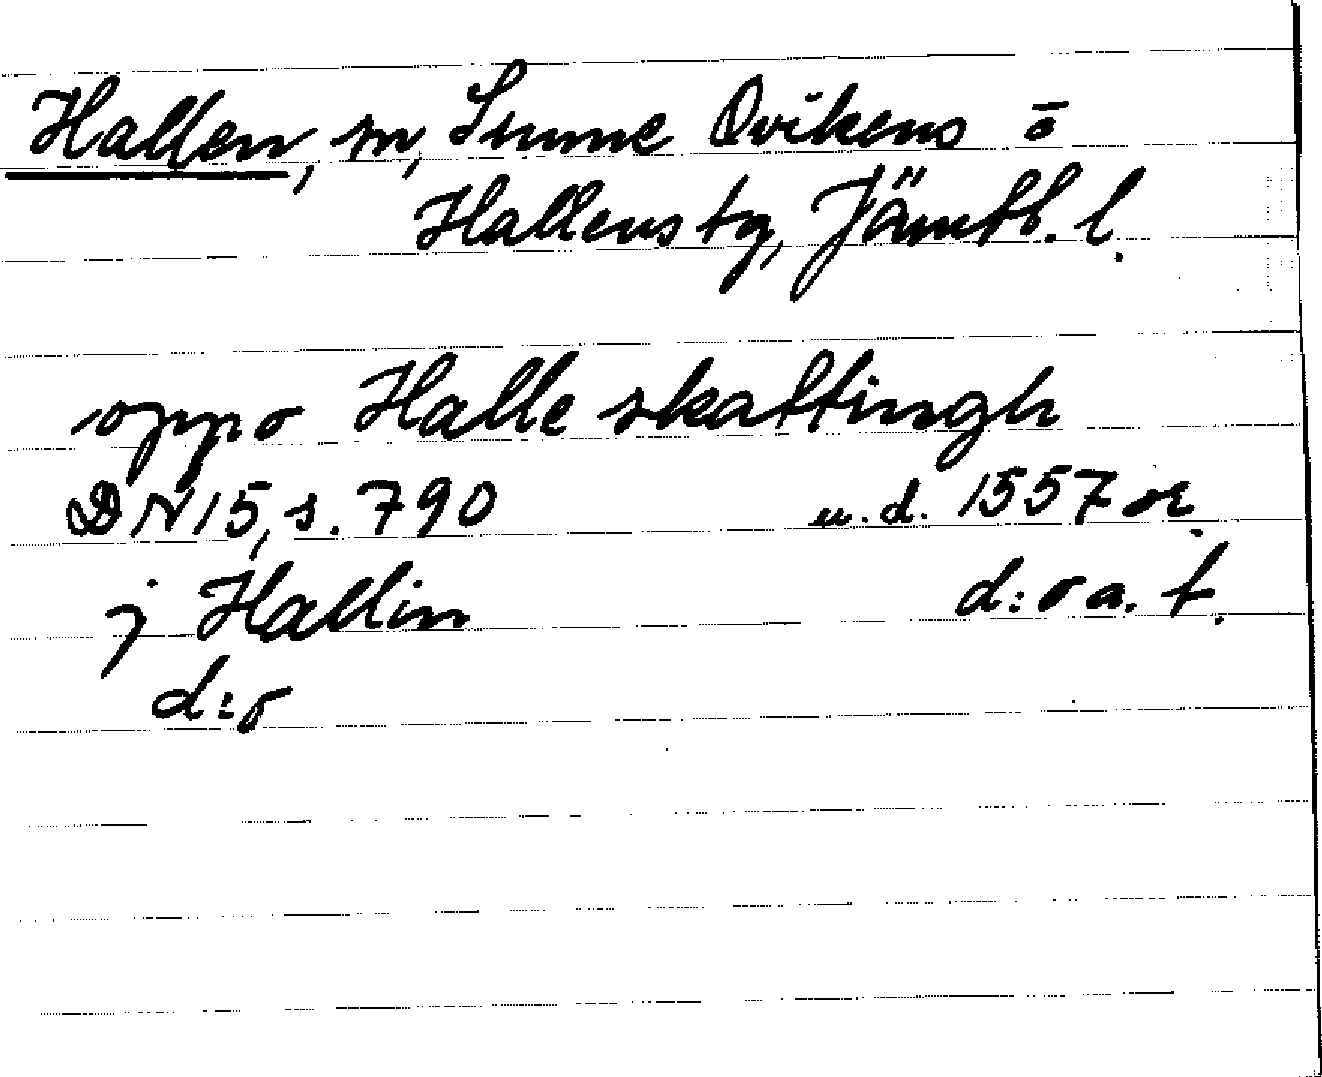 Hallen, sn, Sunne Ovikens o
Hallens tg, Jämtl. l.
oppo Halle skattingh
DN 15, s. 790 u. d. 1557 or.
j Hallin d:o a. t.
d:o